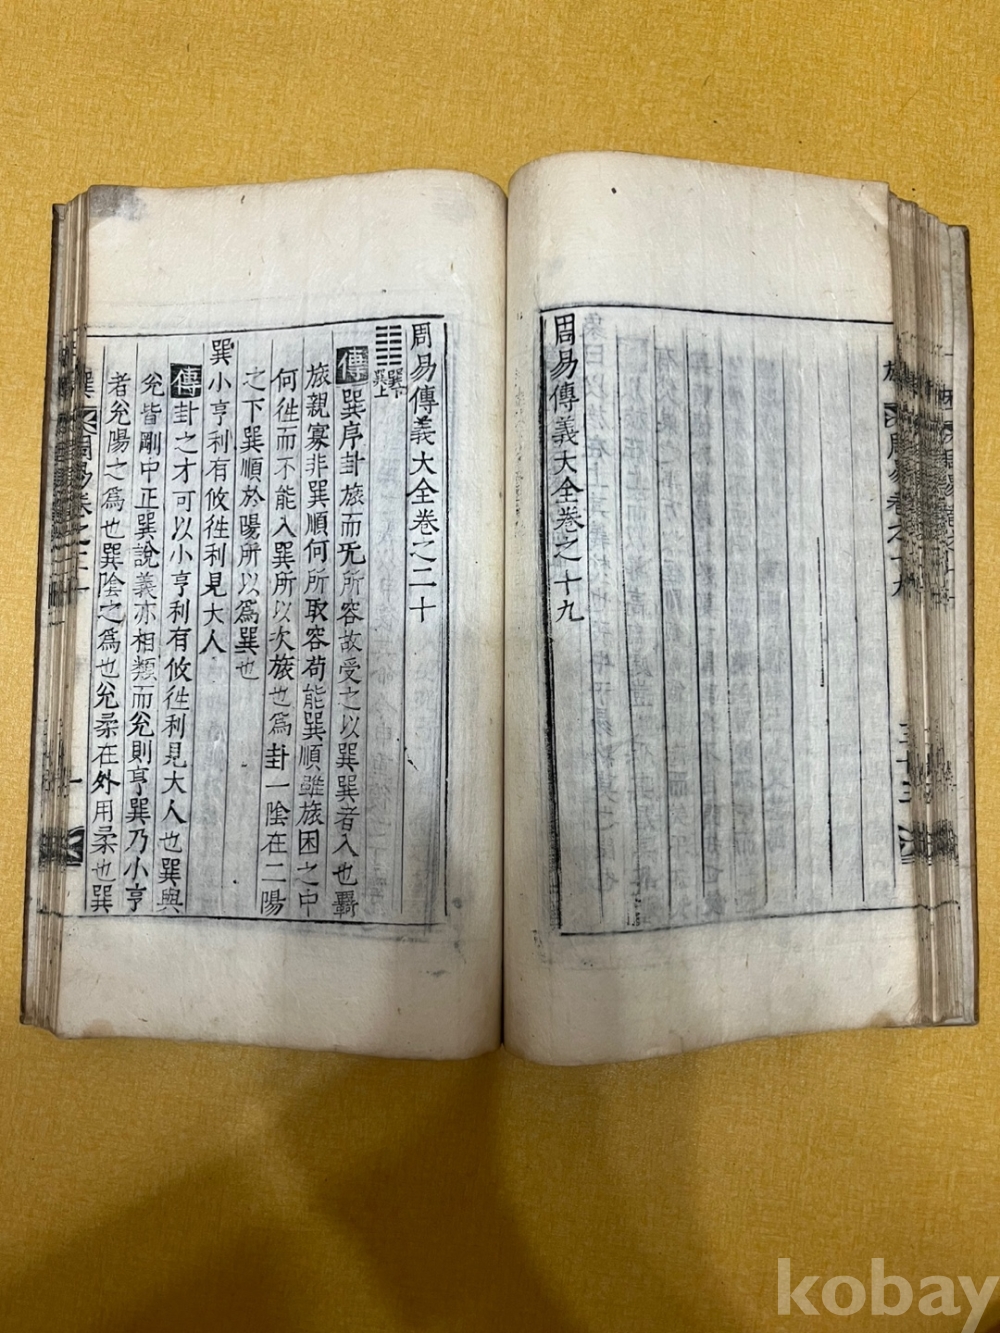 周易傳義大全卷之十九
周易傳義大全卷之二十
巽下
巽上
傳巽序卦旅而无所容故受之以巽巽者入也羇
旅親寡非巽順何所取容苟能巽順雖旅困之中
何徃而不能入巽所以次旅也爲卦一陰在二陽
之下巽順於陽所以爲巽也
巽小亨利有攸徃利見大人
傳卦之才可以小亨利有攸徃利見大人也巽與
兊皆剛中正巽說義亦相類而兊則亨巽乃小亨
者兊陽之爲也巽陰之爲也兊柔在外用柔也巽
巽
周易卷之二十
一
kobay